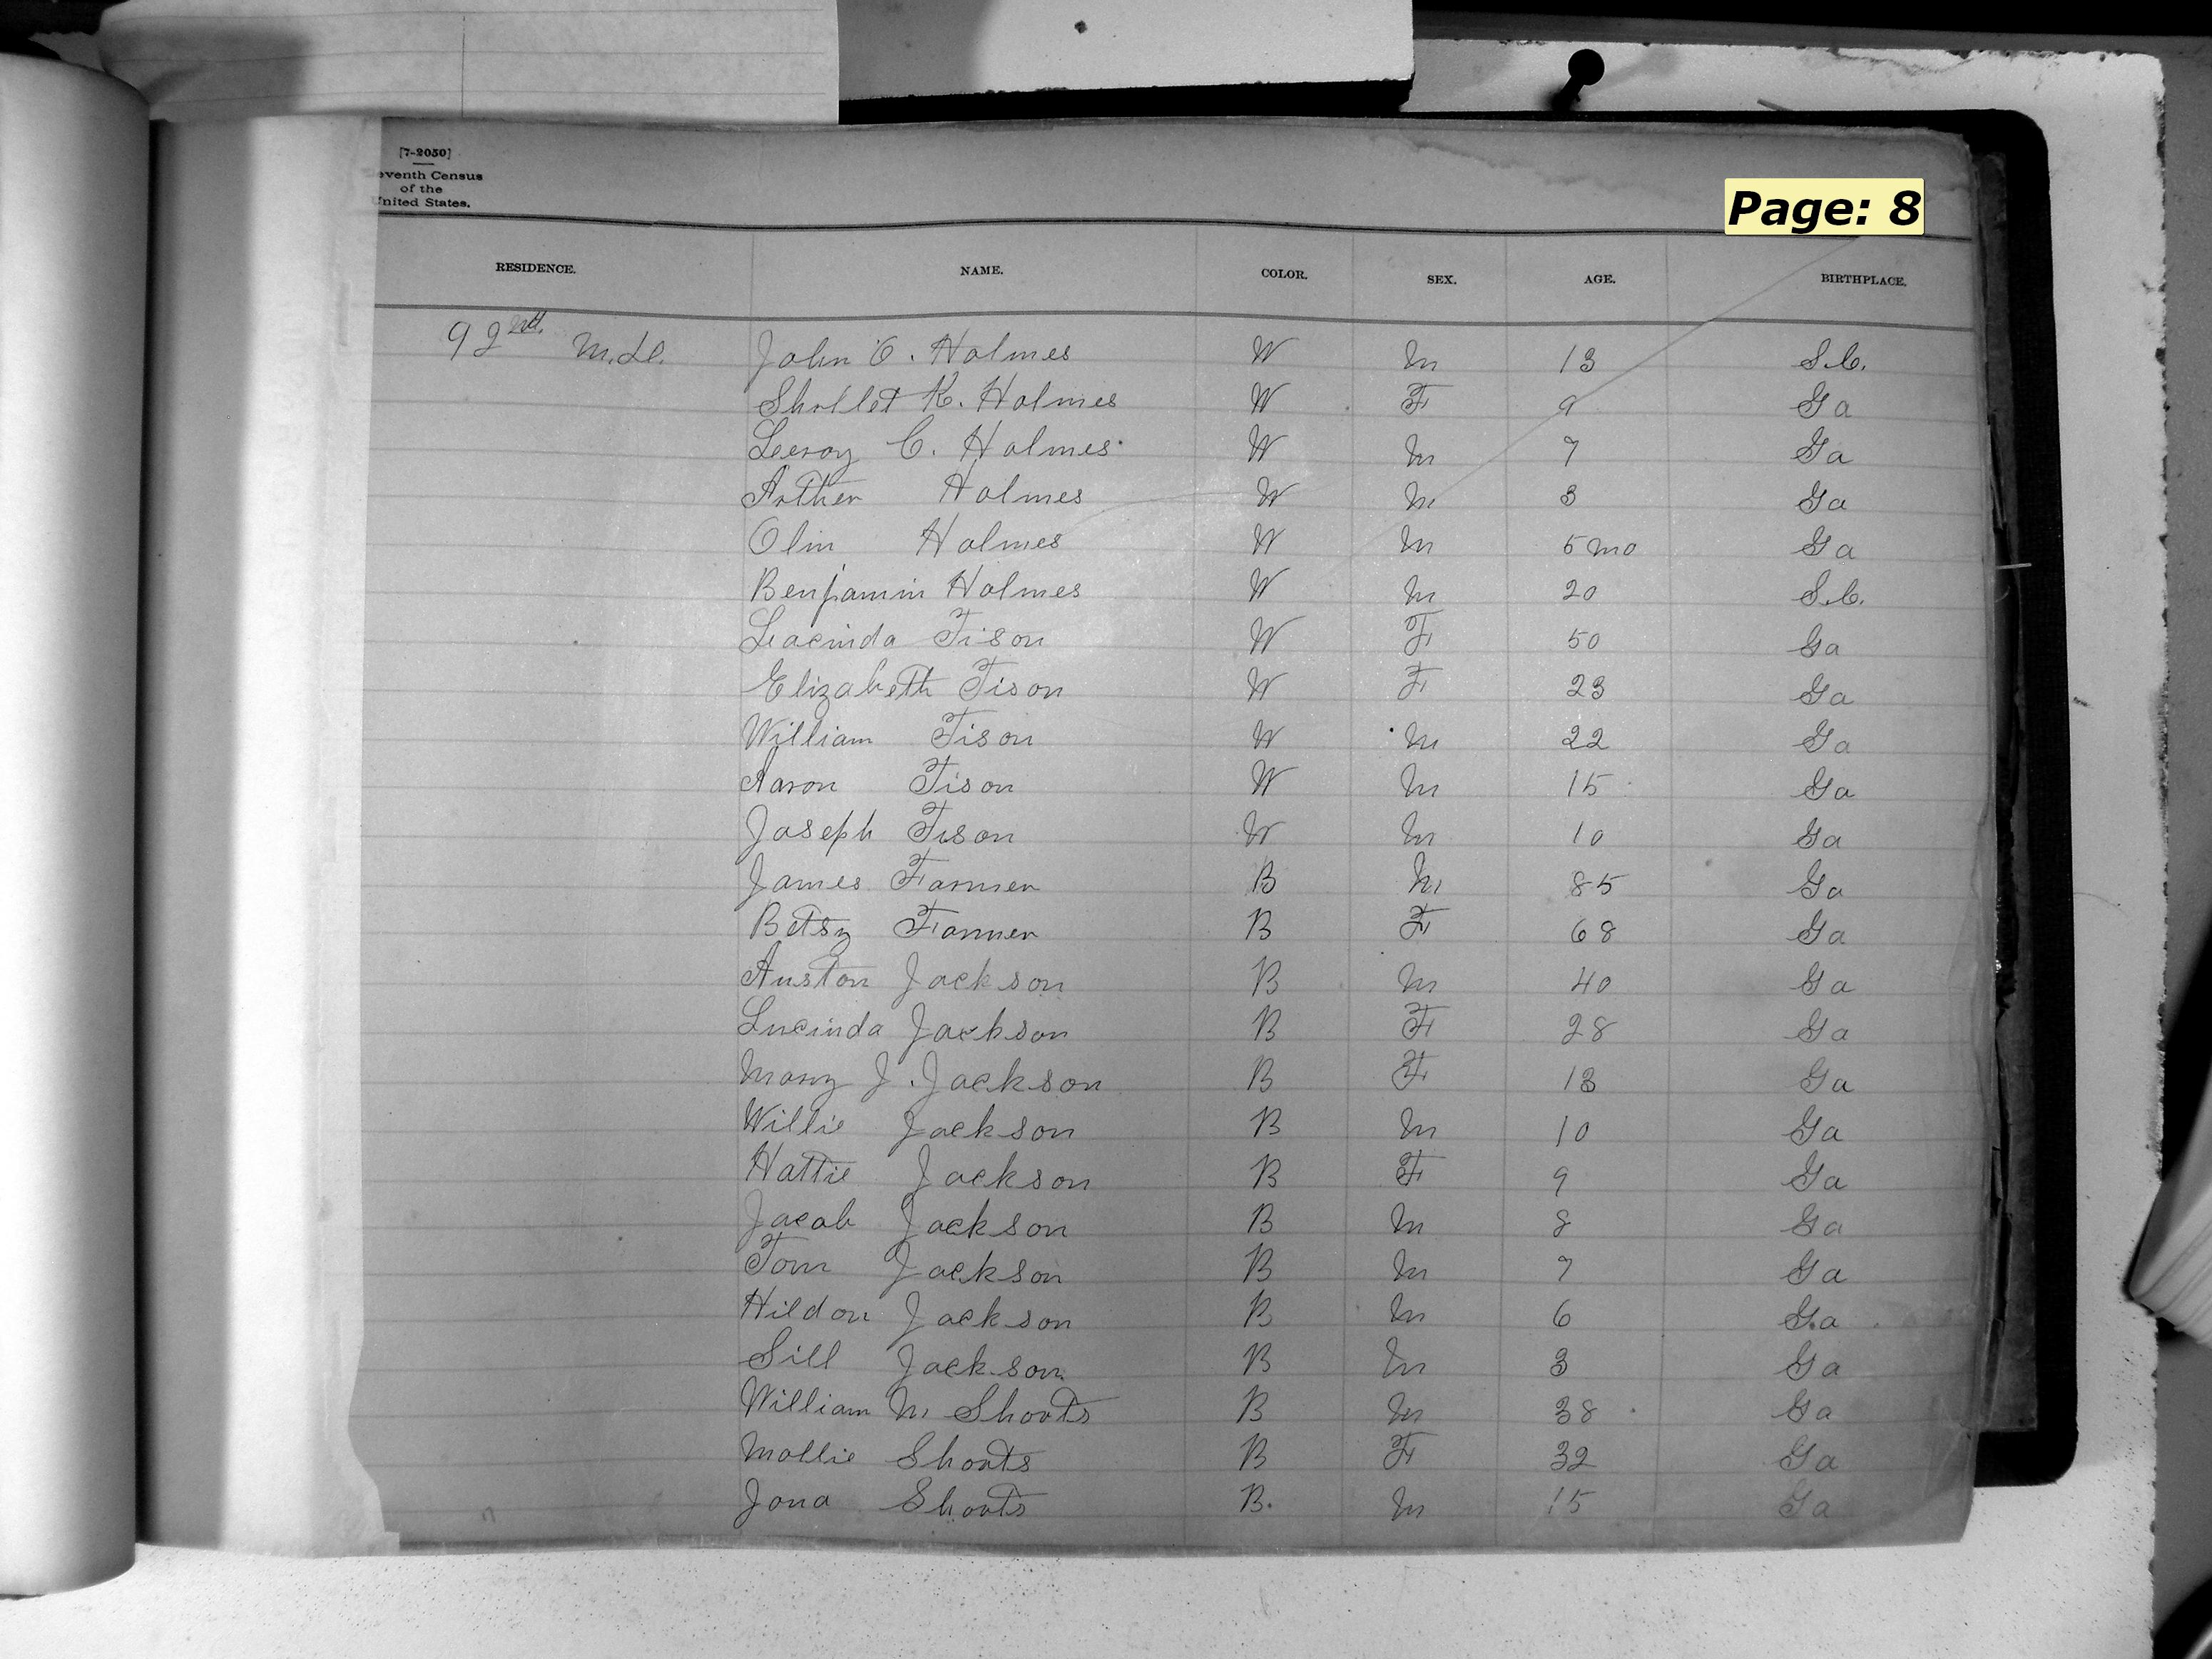 [7-2050]
eventh Census
of the
United States.
Page: 8
RESIDENCE. NAME. COLOR. SEX. AGE. BIRTHPLACE.
92nd M.D. John C. Holmes W M 13 S.C.
Shollet K. Holmes W F 9 Ga
Leeroy C. Holmes W M 7 Ga
Arther Holmes W M 3 Ga
Olin Holmes W M 5 mo Ga
Benjamin Holmes W M 20 S.C.
Lacinda Tison W F 50 Ga
Elizabeth Tison W F 23 Ga
William Tison W M 22 Ga
Aaron Tison W M 15 Ga
Joseph Tison W M 10 Ga
James Farmer B M 85 Ga
Betsy Farmer B F 68 Ga
Auston Jackson B M 40 Ga
Lucinda Jackson B F 28 Ga
Mary J. Jackson B F 13 Ga
Willie Jackson B M 10 Ga
Hattie Jackson B F 9 Ga
Jacob Jackson B M 8 Ga
Tom Jackson B M 7 Ga
Hildon Jackson B M 6 Ga
Sill Jackson B M 3 Ga
William M Shoots B M 38 Ga
Mollie Shoots B F 32 Ga
Jona Shoots B. M 15 Ga